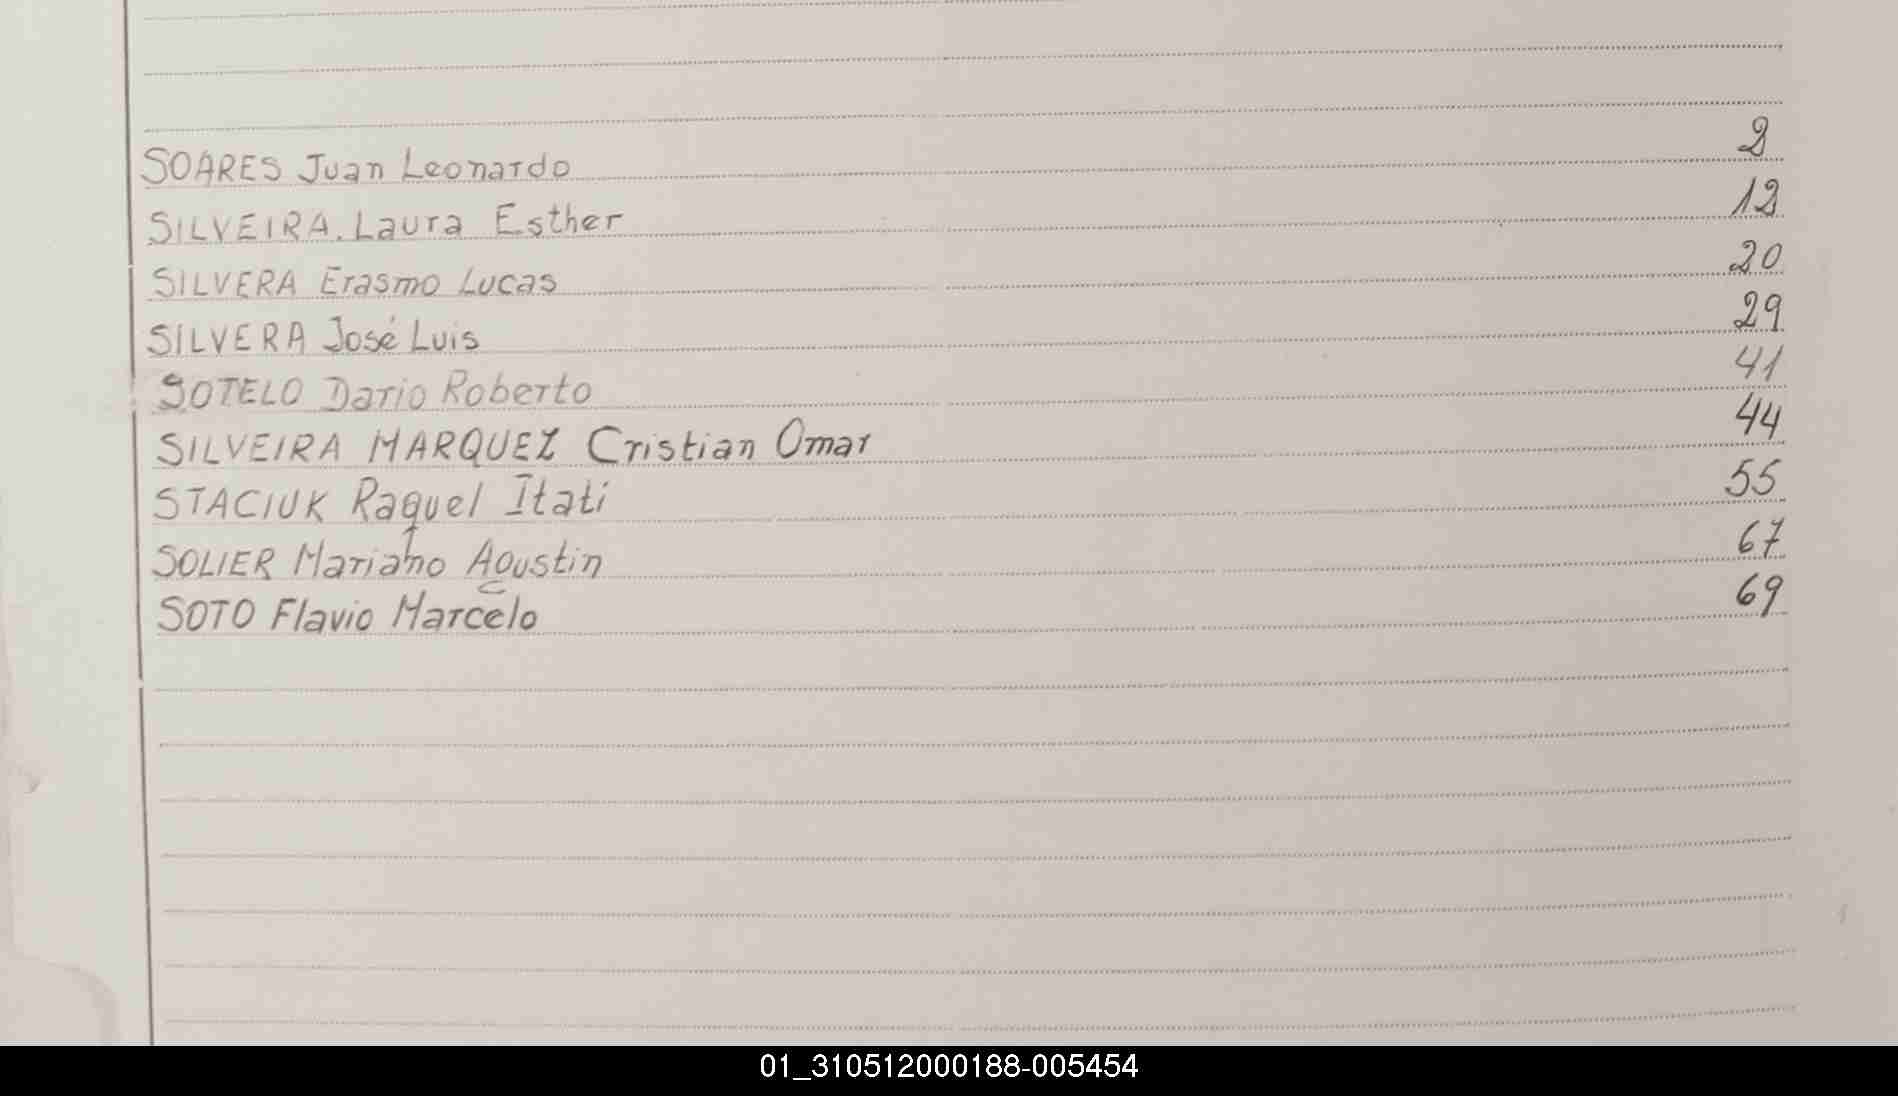 SOARES Juan Leonardo 2
SILVEIRA. Laura Esther 12
SILVERA Erasmo Lucas 20
SILVERA José Luis 29
SOTELO Dario Roberto 41
SILVEIRA MARQUEZ Cristian Omar 44
STACIUK Raquel Itati 55
SOLIER Mariano Agustin 67
SOTO Flavio Marcelo 69
01_310512000188-005454